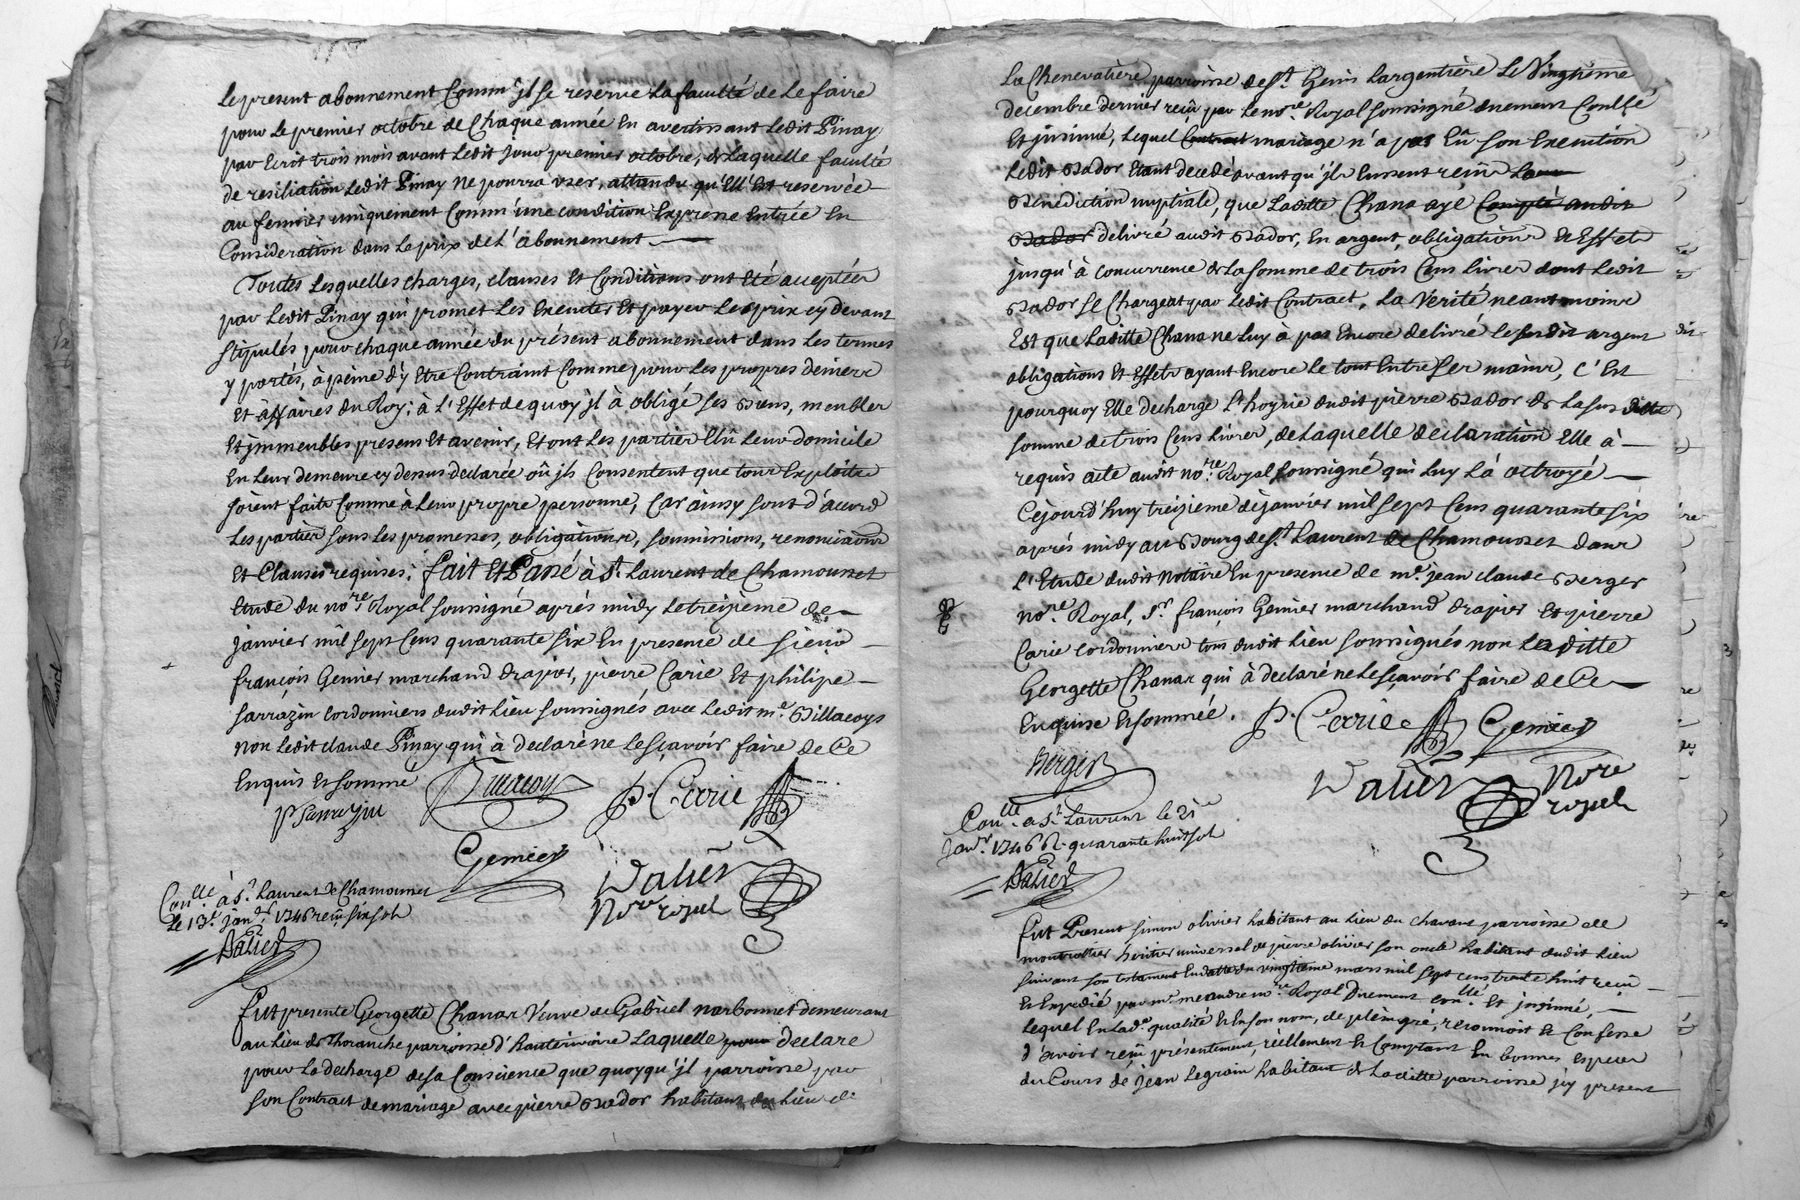 Le present abonnement Comm' jl se reserve la faculté de le faire
pour le premier octobre de Chaque année En avertissant Ledit Pinay
par Ecrit trois mois avant Ledit Jour premier octobre, de Laquelle faculté
de resiliation Ledit Pinay Ne pourra vser, attendu qu'Ell' Est reservée
au fermier uniquement Comm' une condition Expresse Entrée En
Consideration dans Le prix de L'abonnement
Toutes Lesquelles charges, clauses Et Conditions ont Eté acceptées
par Ledit Pinay qui promet Les Executer Et payer Les prix cy devant
stipulés pour chaque année du présent abonnement dans Les termes
y portés, à peine d'y Etre Contraint Comme pour Les propres deniers
Et affaires du Roy; à L'Effet de quoy jl à obligé ses Biens, meubles
Et jmmeubles presens Et avenir, Et ont Les parties Elû Leur domicile
En Leur demeure cy dessus declarée où jls Consentent que tous Exploits
soient faits Comme à Leur propre personne, Car ainsy sont d'acord
Les parties sous Les promesses, obligations, soumissions, renonciations
Et Clauses requises; fait Et Passé à St. Laurent de Chamousset
Etude du nore. Royal soussigné aprés midy Le treizieme de
janvier mil sept Cens quarante six En presence de sieur
françois Genier marchand drapier, pierre Carié Et philipe
sarrazin cordonniers dudit Lieu soussignés avec Ledit me. Billacoys
non Ledit claude Pinay qui à declaré ne Le sçavoir faire de Ce
Enquis Et sommé
P Sarrazin
P. Cerrie
Genier
Valier
Nore royal
Conllé à St. Laurent de Chamousset
Le 13e. janer. 1746 reçû six sols
Valier
Fut presente Georgette Chanar Veuve de Gabriel narbonnet demeurant
au Lieu de Thoranche parroisse d'hauterivoire Laquelle pour declare
pour La decharge de sa Conscience que quoyqu'jl parroisse par
son Contract de mariage avec pierre Bador habitant du Lieu de
La Chenevatière parroisse de St. Genis Largentière Le Vingtieme
decembre dernier reçû par Le nore. Royal soussigné duement Conllé
Et jnsinué, Lequel Contract mariage n'à pas Eu son Execution
Ledit Bador Etant decedé avant qu'jls Eussent reçû La
Bénédiction nuptiale, que Laditte Chana aye Compté audit
Bador delivré audit Bador, En argent, obligations Et Effets
jusqu'à concurrence de La somme de trois Cens Livres dont Ledit
Bador se Chargeat par Ledit Contract, La Verité neantmoins
Est que Laditte Chana ne Luy à pas Encore delivré Le susdit argent
obligations Et Effets ayant Encore Le tout Entre ses mains, C'Est
pourquoy Elle decharge L'hoyrie dudit pierre Bador de La sus ditte
somme de trois Cens Livres, de Laquelle declaration Elle à
requis acte audit nore. Royal soussigné qui Luy L'à octroyé
Cejourd'huy treizieme de janvier mil sept Cens quarante six
aprés midy au Bourg de St. Laurent de Chamousset dans
L'Etude dudit notaire En presence de me. jean claude Berger
nore. Royal, sr. françois Genier marchand drapier Et pierre
Carie cordonniers tous dudit Lieu soussignés non Laditte
Georgette Chanar qui à declaré ne Le sçavoir faire de Ce
Enquise Et sommée.
P. Cerrie
Genier
Berger
Valier
Nore
royal
Conllé à St. Laurent le 21e
Janr. 1746 quarante huit sols
Valier
Fut Present simon olivier habitant au Lieu du chavane parroisse de
montrottier héritier universel de pierre olivier son oncle habitant dudit Lieu
suivant son testament En datte du vingtieme mars mil sept cens trente huit reçû
Et Expedié par me. meandre nre. Royal Duement conllé. Et jnsinué,
Lequel En Lade. qualité Et En son nom, de plein gré, reconnoit Et Confesse
d'avoir reçû présentement, réellement Et Comptant En bonnes Especes
du Cours de jean Legrain habitant de Laditte parroisse jcy present